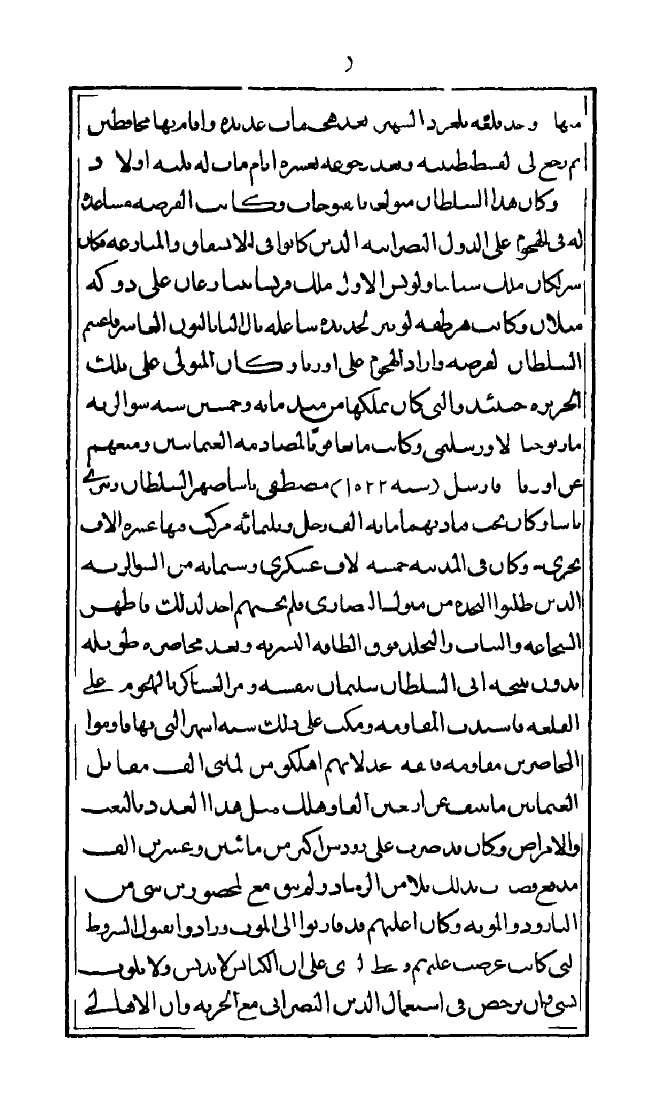 منها وحد بلغه بلغرد الشهير بعد هجمات عديده واقام بها محافظين
ثم رجع لى لقسطنطينيه وبعد رجوعه بعشرة ايام مات له ثلثه اولاد
وكان هذا السلطان متولعا بالفتوحات وكانت الفرصه مساعدة
له فى الهجوم على الدول النصرانيه الذين كانوا فى الانشقاق والمنازعه فكان
شرلكان ملك سبانيا ولويس الاول ملك فرنسا يتنازعان على دوكه
ميلان وكانت هرطقه لوتير لجديده شاغله بال البابا لاون العاشر فاغتنم
السلطان لفرصه واراد الهجوم على اوربا وكان المتولى على تلك
الجزيره حينئذ والتي كان يملكها من منذ مايه وخمسين سنه شوالريه
مار يوحنا لاورسلمى وكانت مانعا قويا لمصادمه العثمانيين ومنعهم
عن اوربا فارسل (سنه ١٥٢٢) مصطفى باشا صهر السلطان وبيرى
باشا وكان تحت يادتهما مايه الف رجل وثلثمائه مركب منها عشرة الاف
بحرى وكان فى المدينه خمسه لاف عسكري وستمايه من الشواليريه
الذين طلبوا النجده من ملوك النصارى فلم يجبهم احد لذلك فاظهر
الشجاعه والثبات والتجلد فوق الطاقه البشريه وبعد محاصره طويله
بدون نتيجه اتى السلطان سليمان بنفسه وامر العساكر بالهجوم على
القلعه فاشتدت المقاومه ومكث على ذلك سته اشهر التى بها قاوموا
المحاصرين مقاومه فائقه عد لانهم اهلكو من لمايتى الف مقاتل
العثمانيين ما ينيف عن اربعين الفا وهلك مثل هذا العدد بالتعب
والامراض وكان قد ضرب على رودس اكثر من مائتين وعشرين الف
مدفع فصـ ت بذلك تلا من الرماد ولم يبق مع لمحصورين شى من
البارود والمونه وكان اغلبهم قد قاربوا الى الموت ورادوا بقبول الشروط
لتى كانت عرضت عليهم وهى على ان الكنائس لا تدنس ولا يلوث
شى وان يرخص فى استعمال الدين النصرانى مع الحريه وان الاهالى